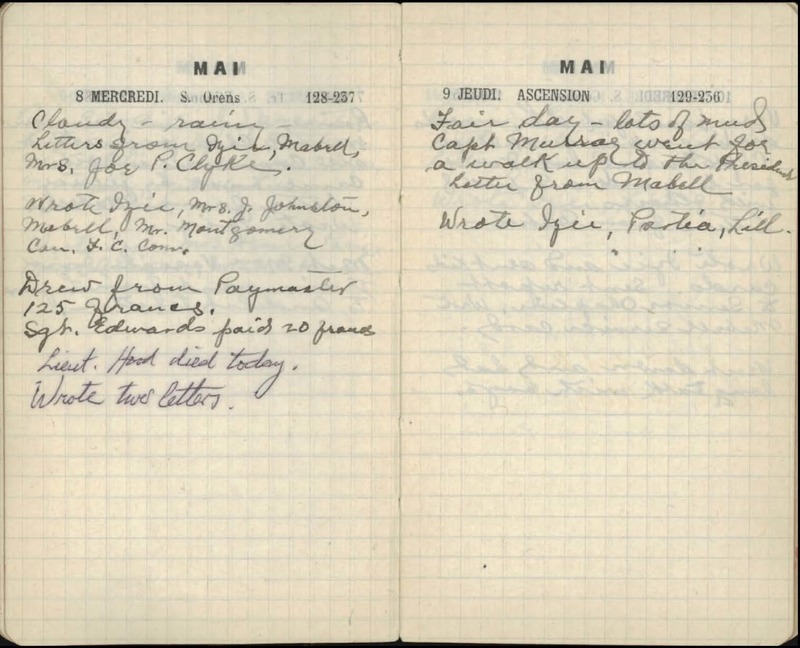 MAI
8 MERCREDI. S. Orens 128-237
Cloudy - rain
Letters from Izie, Mabell,
Mrs. Joe P. Clyke.
Wrote Izie, Mrs. J. Johnston,
Mabell, Mr. Montgomery
Can. F. C. Com.
Drew from Paymaster
125 francs.
Sgt. Edwards paid 20 francs
Lieut. Hood died today.
Wrote two letters.
MAI
9 JEUDI. ASCENSION 129-236
Fair day - lots of mud
Capt Murray went for
a walk up to the President
Letter from Mabell
Wrote Izie, Portia, Lill.